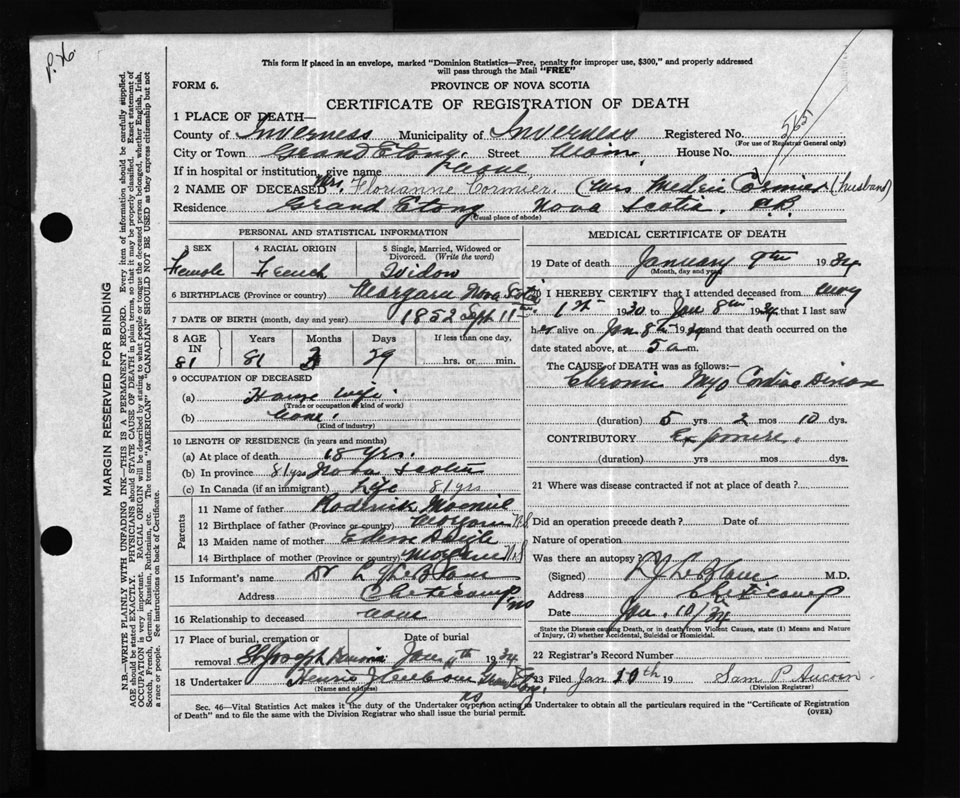 P. X.
This form if placed in an envelope, marked "Dominion Statistics—Free, penalty for improper use, $300," and properly addressed
will pass through the Mail "FREE"
FORM 6.
PROVINCE OF NOVA SCOTIA
CERTIFICATE OF REGISTRATION OF DEATH
1 PLACE OF DEATH—
County of Inverness Municipality of Inverness Registered No. 565
(For use of Registrar General only)
City or Town Grand Etong. Street Main. House No.
If in hospital or institution, give name
2 NAME OF DECEASED Mrs. Florianne Cormier. (Mrs Cormier (husband)
Residence Grand Etong Nova Scotia. C.B.
(Usual place of abode)
PERSONAL AND STATISTICAL INFORMATION
3 SEX 4 RACIAL ORIGIN 5 Single, Married, Widowed or Divorced. (Write the word)
Female French Widow
6 BIRTHPLACE (Province or country) Margaree Nova Scotia
7 DATE OF BIRTH (month, day and year) 1852 Sept 11th
8 AGE IN Years Months Days If less than one day,
81 81 3 29 hrs. or min.
9 OCCUPATION OF DECEASED
(a) House wife
(Trade or occupation or kind of work)
(b) none.
(Kind of industry)
10 LENGTH OF RESIDENCE (in years and months)
(a) At place of death 68 yrs.
(b) In province 81 yrs Nova Scotia
(c) In Canada (if an immigrant) Life 81 yrs
Parents
11 Name of father Roderick
12 Birthplace of father (Province or country) Margaree N.S
13 Maiden name of mother
14 Birthplace of mother (Province or country) Margaree N.S
15 Informant's name Dr L J LeBlanc
Address Cheticamp NS
16 Relationship to deceased none
17 Place of burial, cremation or removal St Joseph Date of burial Jan 11th 1934
18 Undertaker
(Name and address) NS
MEDICAL CERTIFICATE OF DEATH
19 Date of death January 9th 1934
(Month, day and year)
20 I HEREBY CERTIFY that I attended deceased from
1st 1930 to Jan 8th 1934 that I last saw
her alive on Jan 8th 1934 and that death occurred on
date stated above, at 5 a m.
The CAUSE OF DEATH was as follows:—
Chronic Myo Cardiac Disease
(duration) 5 yrs 2 mos 10 dys.
CONTRIBUTORY Exposure.
(duration) yrs mos dys.
21 Where was disease contracted if not at place of death?
Did an operation precede death? Date of
Nature of operation
Was there an autopsy?
(Signed) L J LeBlanc M.D.
Address Cheticamp
Date Jan. 10/34
State the Disease causing Death, or in death from Violent Causes, state (1) Means and Nature of Injury, (2) whether Accidental, Suicidal or Homicidal.
22 Registrar's Record Number
23 Filed Jan 10th 19 Sam P. Aucoin
(Division Registrar)
Sec. 46—Vital Statistics Act makes it the duty of the Undertaker or person acting as Undertaker to obtain all the particulars required in the "Certificate of Registration
of Death" and to file the same with the Division Registrar who shall issue the burial permit. (OVER)
MARGIN RESERVED FOR BINDING
N.B.—WRITE PLAINLY WITH UNFADING INK—THIS IS A PERMANENT RECORD. Every item of information should be carefully supplied.
AGE should be stated EXACTLY. PHYSICIANS should STATE CAUSE OF DEATH in plain terms, so that it may be properly classified. Exact statement of
OCCUPATION is very important. RACIAL ORIGIN will be described by stating to what people or tongue the deceased person belonged, whether English, Irish,
Scotch, French, German, Russian, Ruthenian, etc. The terms "AMERICAN" or "CANADIAN" SHOULD NOT BE USED as they express citizenship but not
a race or people. See instructions on back of Certificate.